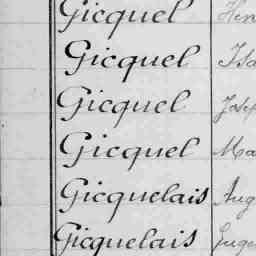 Gicquel Hen
Gicquel Isa
Gicquel Jose
Gicquel Ma
Gicquelais Aug
Gicquelais Euge